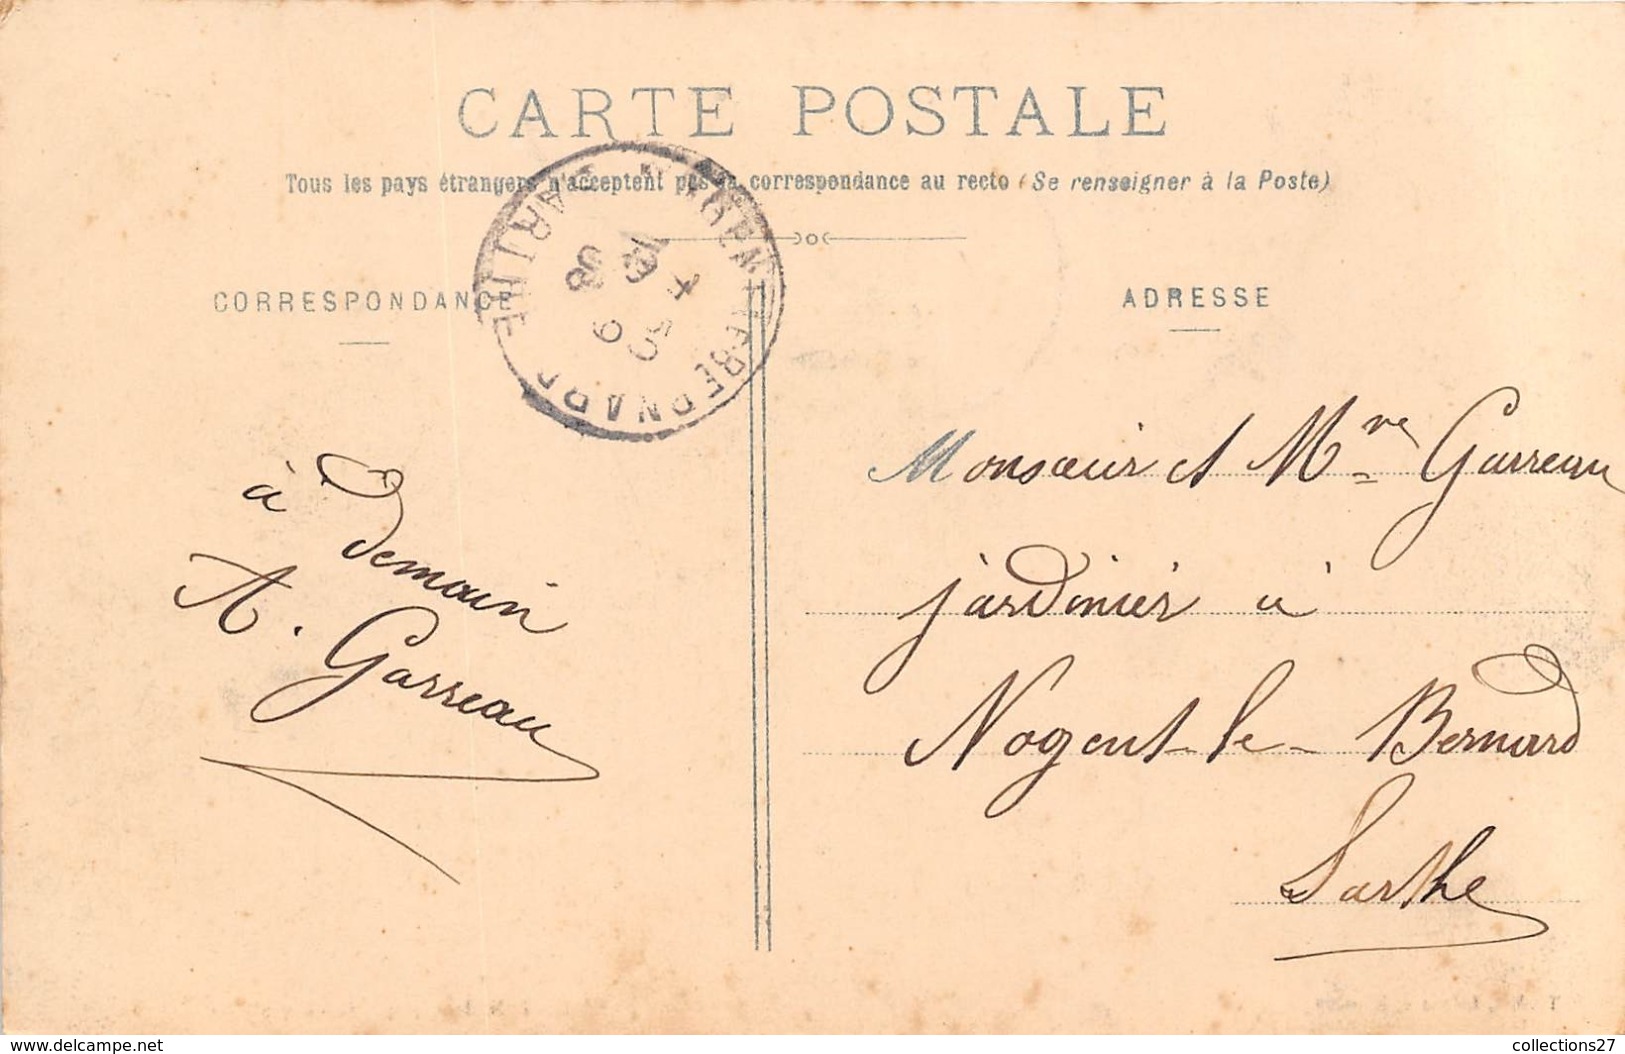 CARTE POSTALE
Tous les pays étrangers n'acceptent pas la correspondance au recto (Se renseigner à la Poste)
CORRESPONDANCE
ADRESSE
NOGENT-LE-BERNARD SARTHE
à Demain
A. Garreau
Monsieur et Mme Garreau
jardinier à
Nogent-le-Bernard
Sarthe
www.delcampe.net
collections27